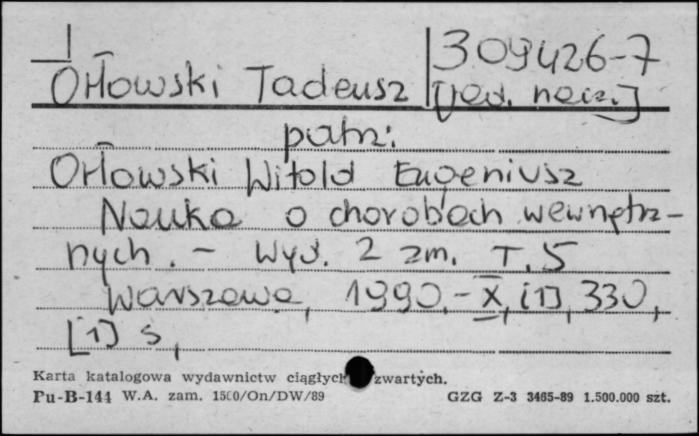 I
309426-7
Orłowski Tadeusz [red. nacz.]
patrz:
Orłowski Witold Eugeniusz
Nauka o chorobach wewnętrz-
nych. - Wyd. 2 zm. T. 5
Warszawa, 1990.- X, [1], 330,
[1] s,
Karta katalogowa wydawnictw ciągłych zwartych.
Pu-B-144 W.A. zam. 1500/On/DW/89 GZG Z-3 3465-89 1.500.000 szt.